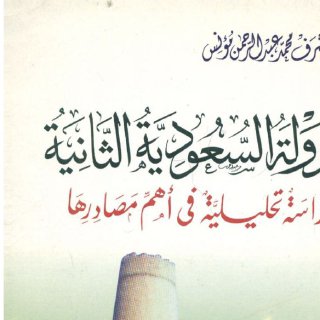 شرف محمد عبد الرحمن مؤنس
ولة السعودية الثانية
راسة تحليلية في أهم مصادرها